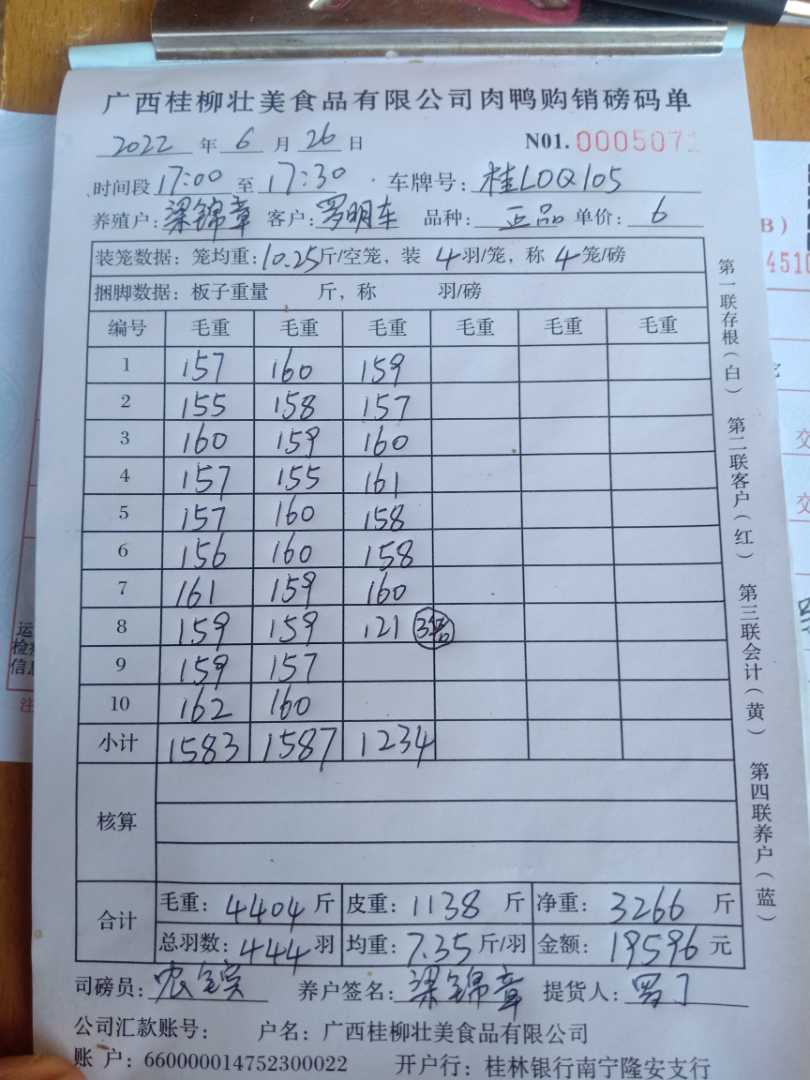 广西桂柳壮美食品有限公司肉鸭购销磅码单
2022 年 6 月 26 日 N01. 0005071
时间段 17:00 至 17:30 车牌号: 桂LDQ105
养殖户: 梁锦章 客户: 罗明车 品种: 正品 单价: 6
装笼数据: 笼均重: 10.25斤/空笼, 装 4羽/笼, 称 4笼/磅
捆脚数据: 板子重量 斤, 称 羽/磅
编号 毛重 毛重 毛重 毛重 毛重 毛重
1 157 160 159
2 155 158 157
3 160 159 160
4 157 155 161
5 157 160 158
6 156 160 158
7 161 159 160
8 159 159 121 3笼
9 159 157
10 162 160
小计 1583 1587 1234
核算
合计
毛重: 4404 斤 皮重: 1138 斤 净重: 3266 斤
总羽数: 444 羽 均重: 7.35 斤/羽 金额: 19596 元
司磅员: 养户签名: 梁锦章 提货人: 罗丁
公司汇款账号: 户名: 广西桂柳壮美食品有限公司
账 户: 660000014752300022 开户行: 桂林银行南宁隆安支行
第一联存根(白) 第二联客户(红) 第三联会计(黄) 第四联养户(蓝)
B)
4510
交
交
运
检
信息
注